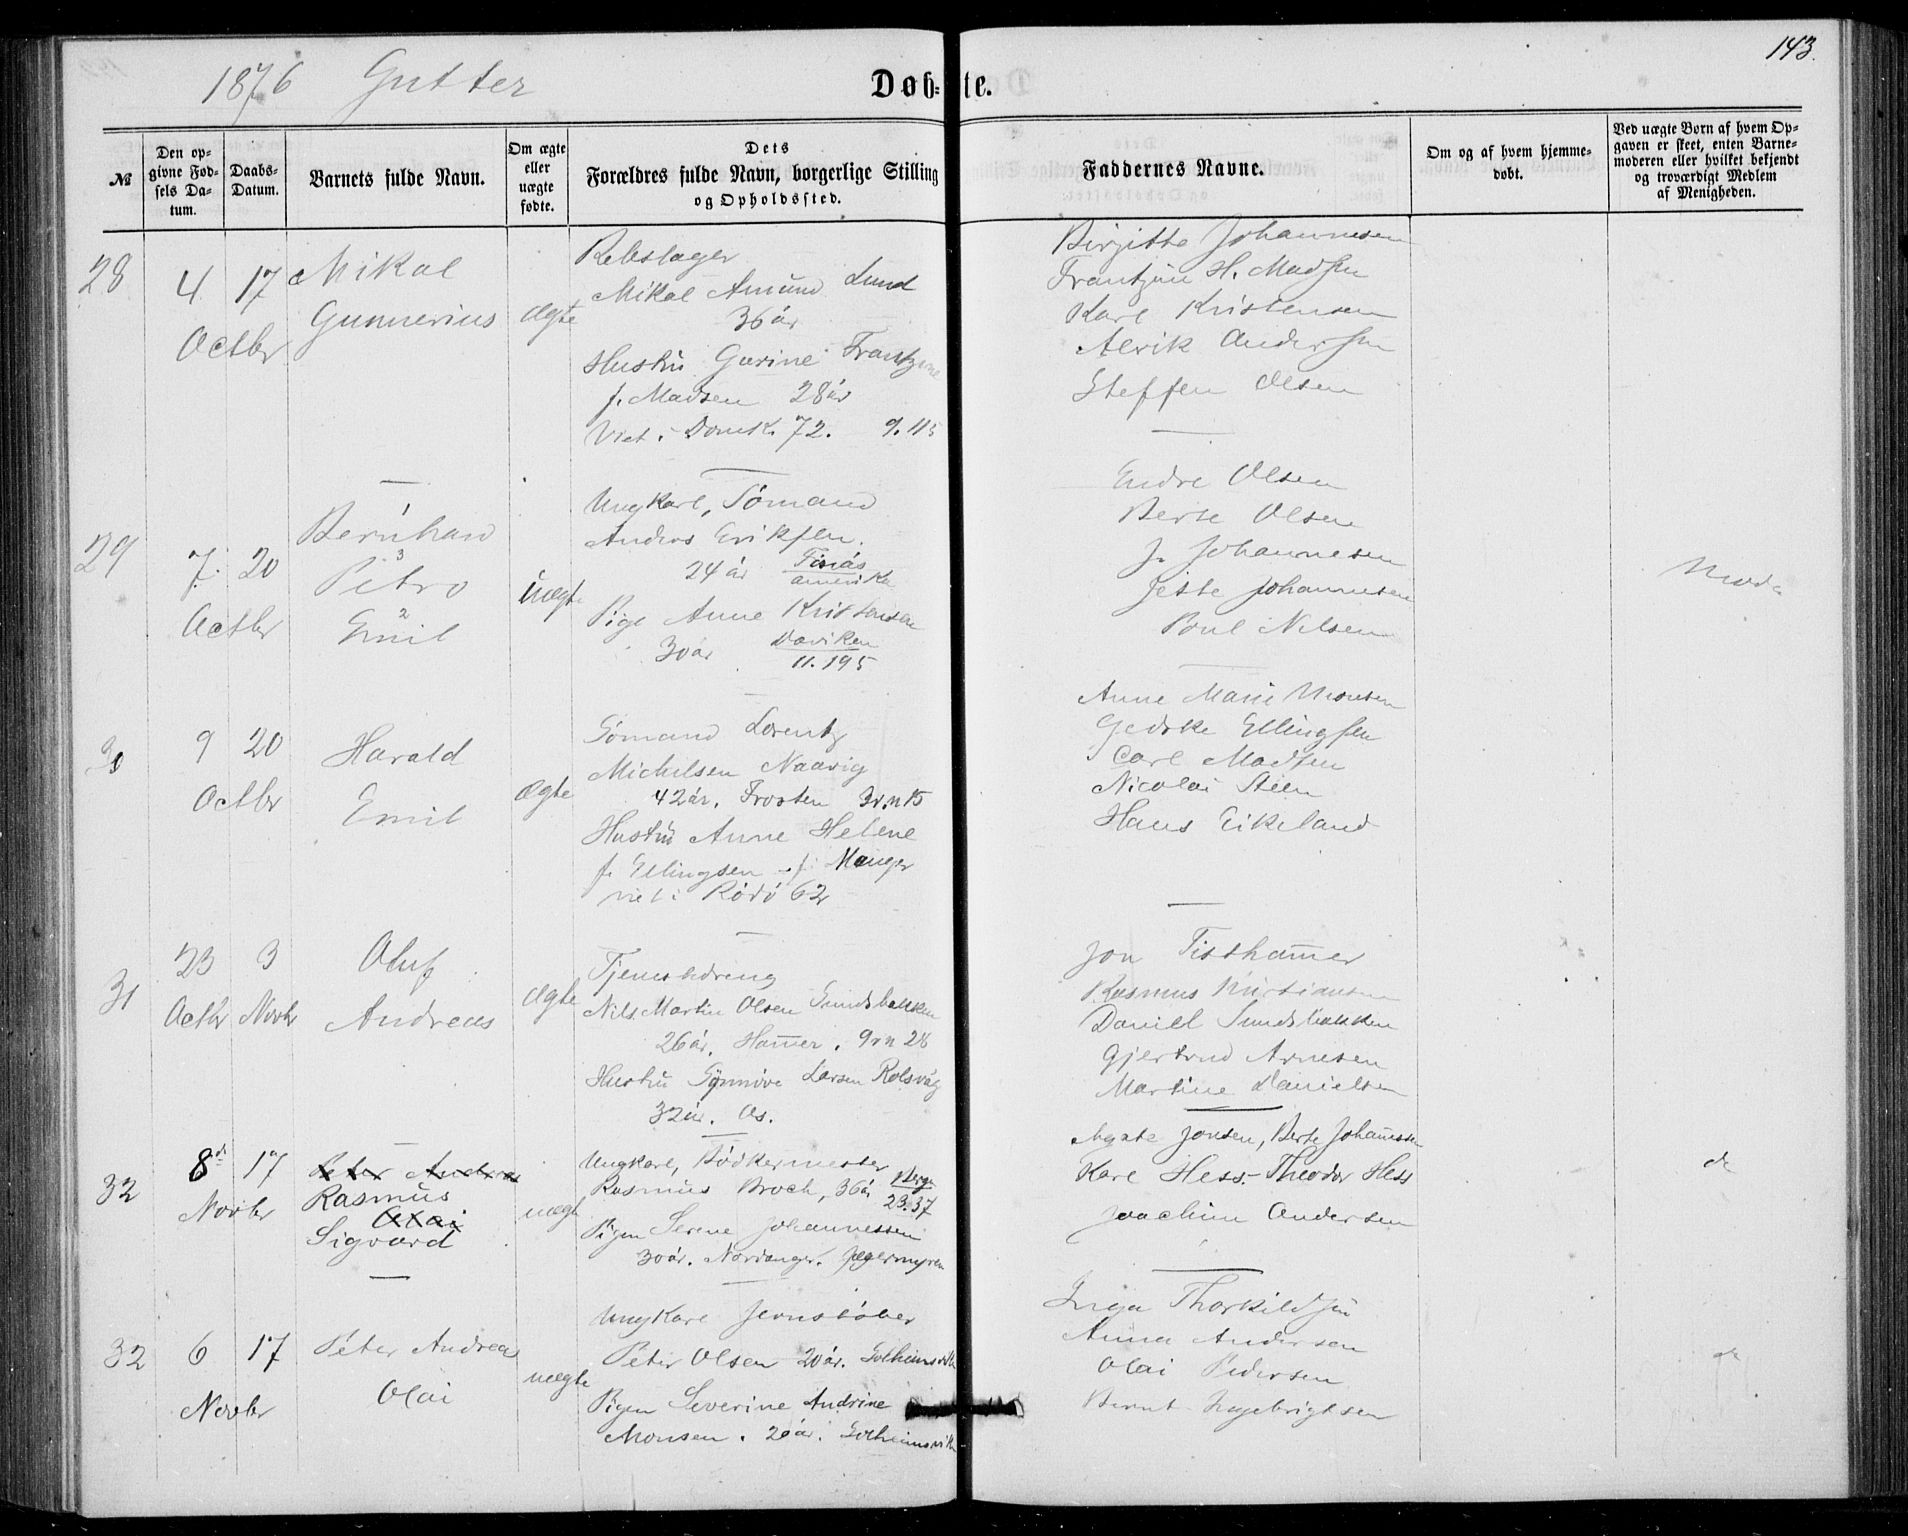 143.
1876 Gutter
Døb- te.
№
Den opgivne Fødsels Datum.
Daabs-Datum.
Barnets fulde Navn.
Om ægte eller uægte fødte.
Dets Forældres fulde Navn, borgerlige Stilling og Opholdssted.
Faddernes Navne.
Om og af hvem hjemmedøbt.
Ved uægte Børn af hvem Opgaven er skeet, enten Barnemoderen eller hvilket bekjendt og troværdigt Medlem af Menigheden.
28
4 17
Octbr
Mikal
Gunnerius
ægte
Rebslager
Mikal Amund Lund
36 år
Hustru Gurine Frantzine
f. Madsen 28 år
Viet i Domk. 72. 9. 115
Birgitte Johannesen
H. Madsen
Karl Kristensen
Alrik Andersen
Steffen Olsen
29
7. 20
Octbr
Bernhard
3
Petro
2
Emil
uægte
Ungkarl, Sømand
Anders Eriksen.
24 år
amerika
Pige Anne Kristensen
30 år Daviken
11. 195
Endre Olsen
Berte Olsen
J. Johannesen
Jette Johannesen
Poul Nilsen
30
9 20
Octbr
Harald
Emil
ægte
Sømand Lorentz
Michelsen Naavig
42 år. Frosten
Hustru Anne Helene
f. Ellingsen f. Manger
viet i Rödö 62
Anne Marie Monsen
Gedske Ellingsen
Carl Madsen
Nicolai Steen
Hans Eikeland
31
23 3
Octbr Novbr
Oluf
Andreas
ægte
Tjenestdreng
Nils Martin Olsen Sundsbakken
26 år, Hamer. 9 v n 28
Hustru Synnöve Larsen Rolsvåg
32 år. Os.
Jon Tisthamer
Rasmus Kristiansen
Daniel Sundsbakken
Gjertrud Arnesen
Martine Danielsen
32
8de 17
Novbr
Peter Andreas
Rasmus
Olai
Sigvard
uægte
Ungkarl, Bödkermester
Rasmus Broch, 36 år Berge
23.37
Pigen Serene Johannessen
30 år. Nordanger. Jægermyren
Agate Jonsen, Berte Johannessen
Karl Hess. Theodor Hess
Joachim Andersen
do
32
6 17
Novbr
Peter Andreas
Olai
uægte
Ungkarl Jernstöber
Peter Olsen 20 år. Solheimsvik
Pigen Severine Andrine
Monsen. 20 år. Solheimsvik
Inga Thorkildsen
Anna Andersen
Olai Pedersen
Bernt Ingebrigtsen
do